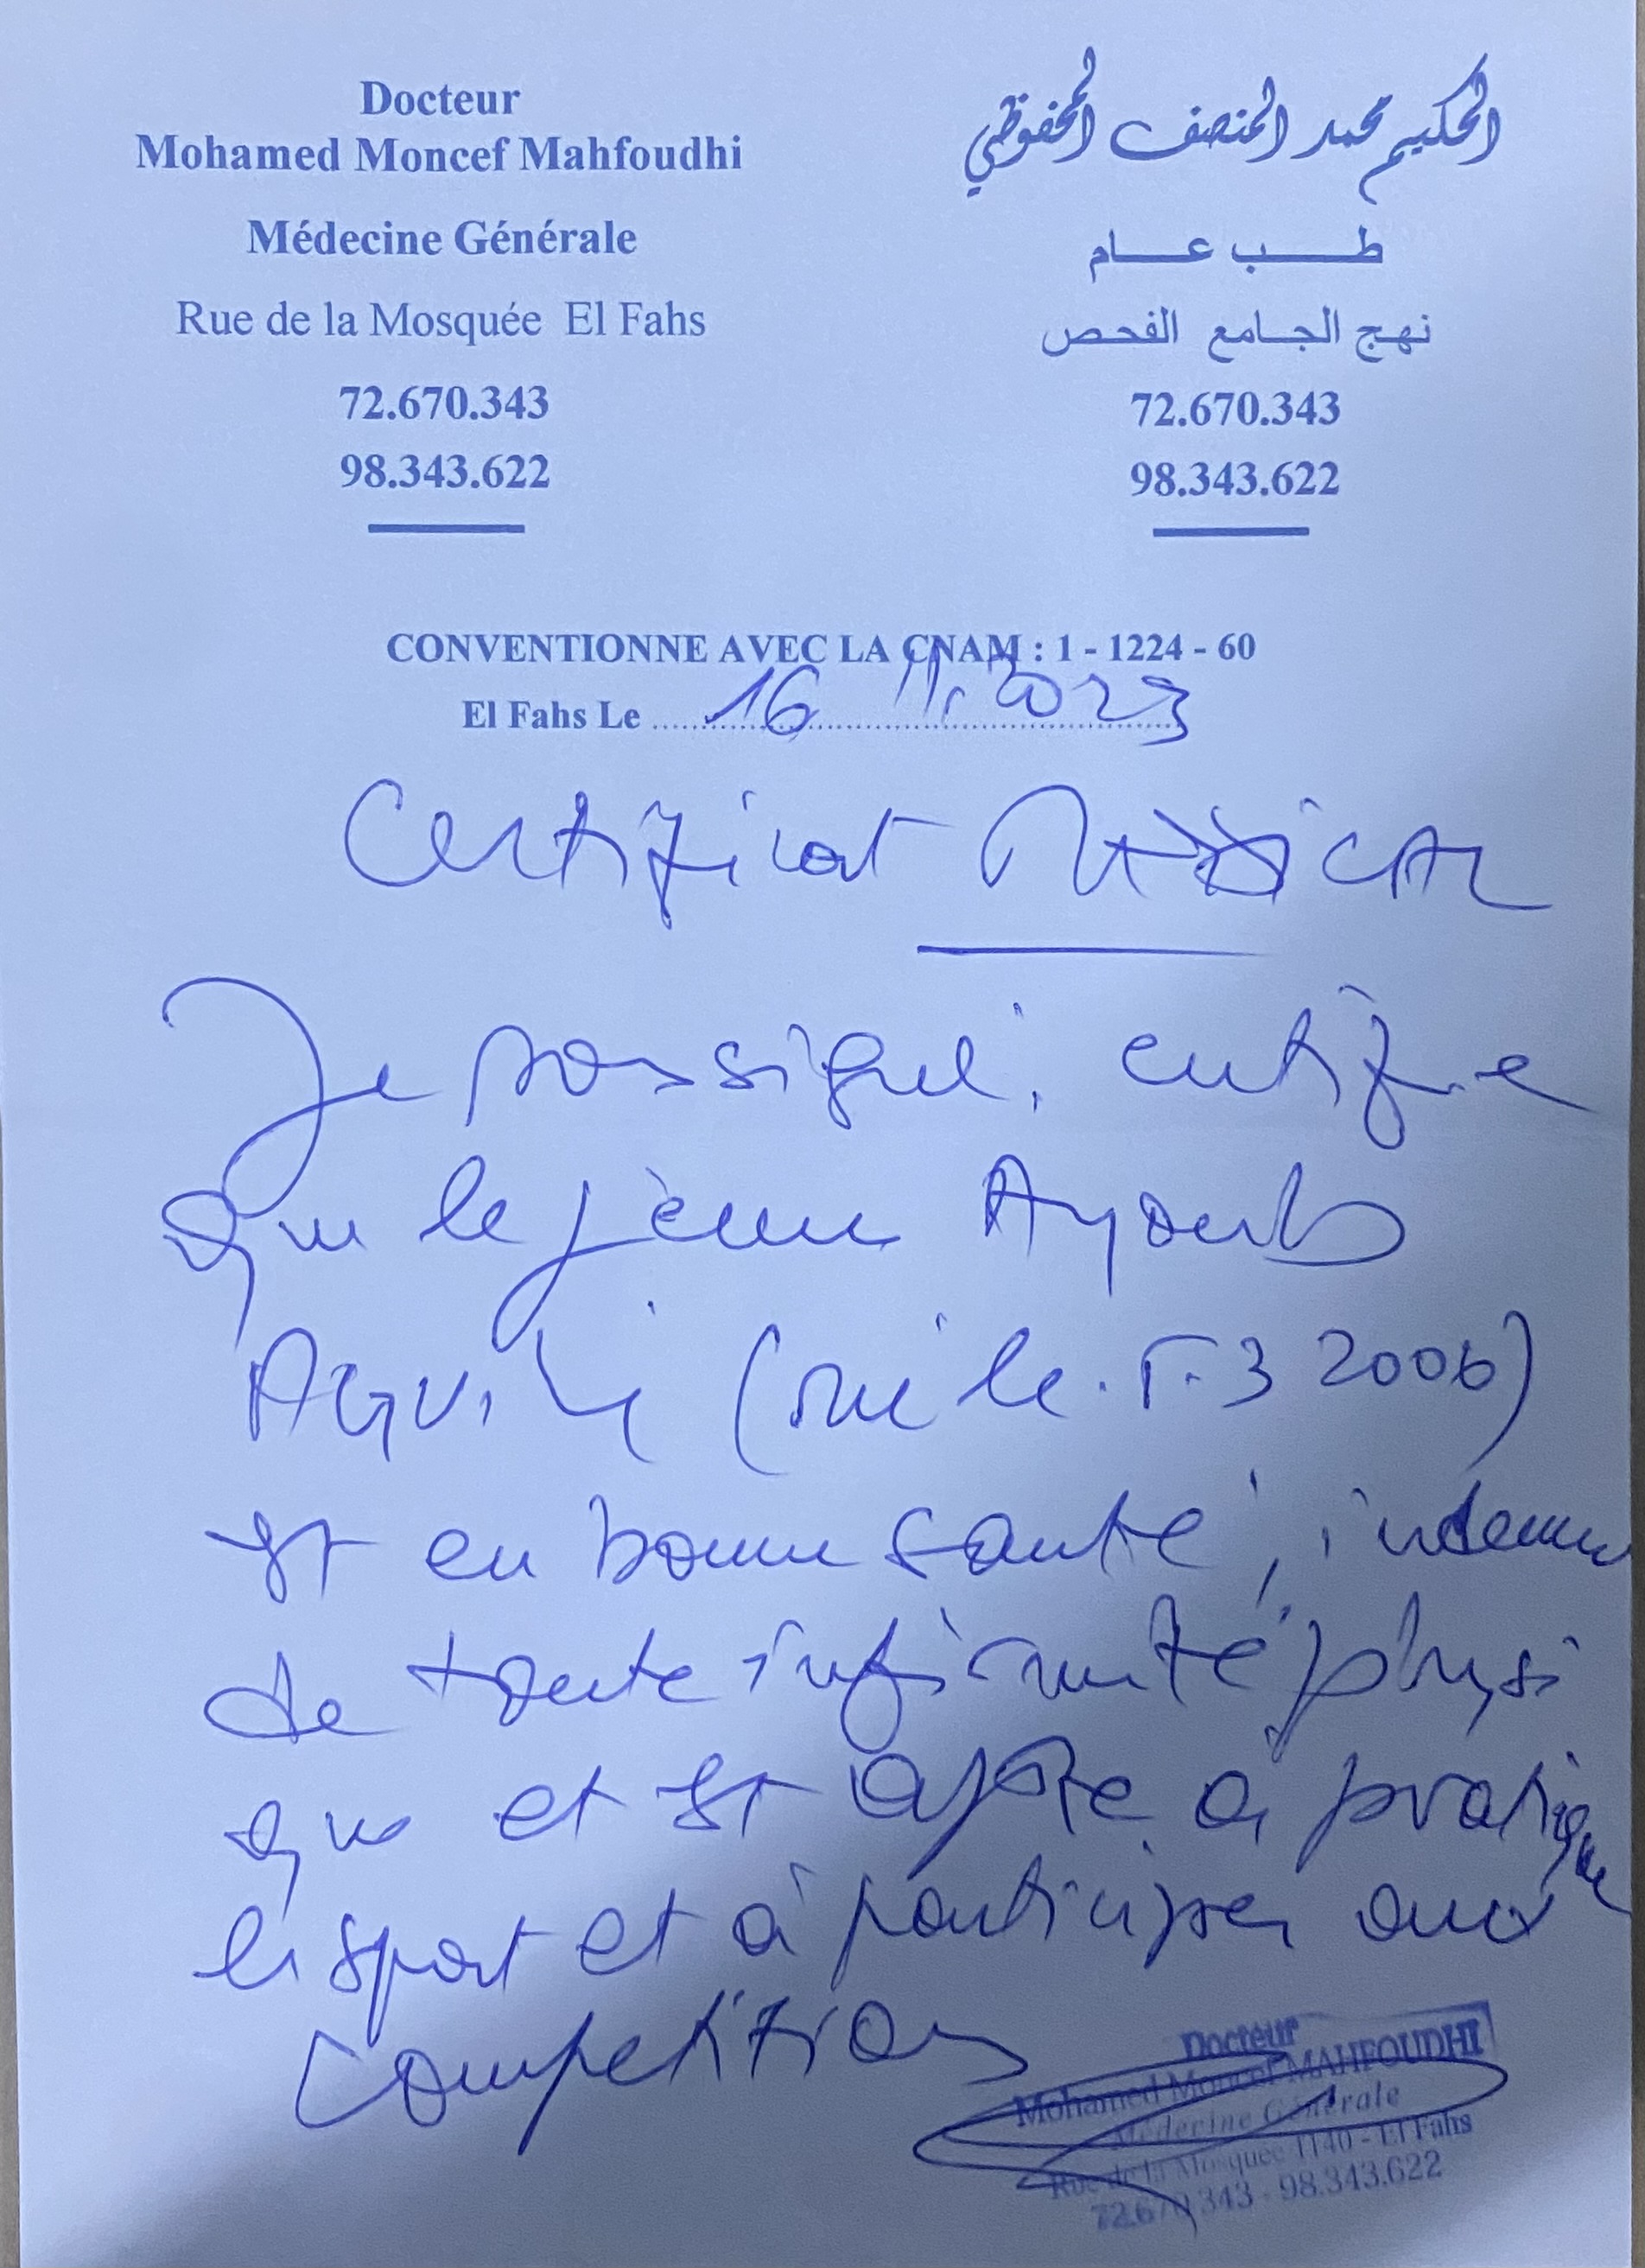 Docteur
Mohamed Moncef Mahfoudhi
Médecine Générale
Rue de la Mosquée El Fahs
72.670.343
98.343.622
الحكيم محمد المنصف المحفوظي
طب عام
نهج الجامع الفحص
72.670.343
98.343.622
CONVENTIONNE AVEC LA CNAM : 1 - 1224 - 60
El Fahs Le 16 11. 2023
Certificat MEDICAL
Je soussigné, certifie
que le jeune Ayoub
(né le . 5. 3 2006)
est en bonne santé, indemne
de toute infirmité physi
que et est apte à pratique
le sport et à participer aux
compétitions
Docteur
Mohamed Moncef MAHFOUDHI
Médecine Générale
Rue de la Mosquée 1140 - El Fahs
72.670 343 - 98.343.622